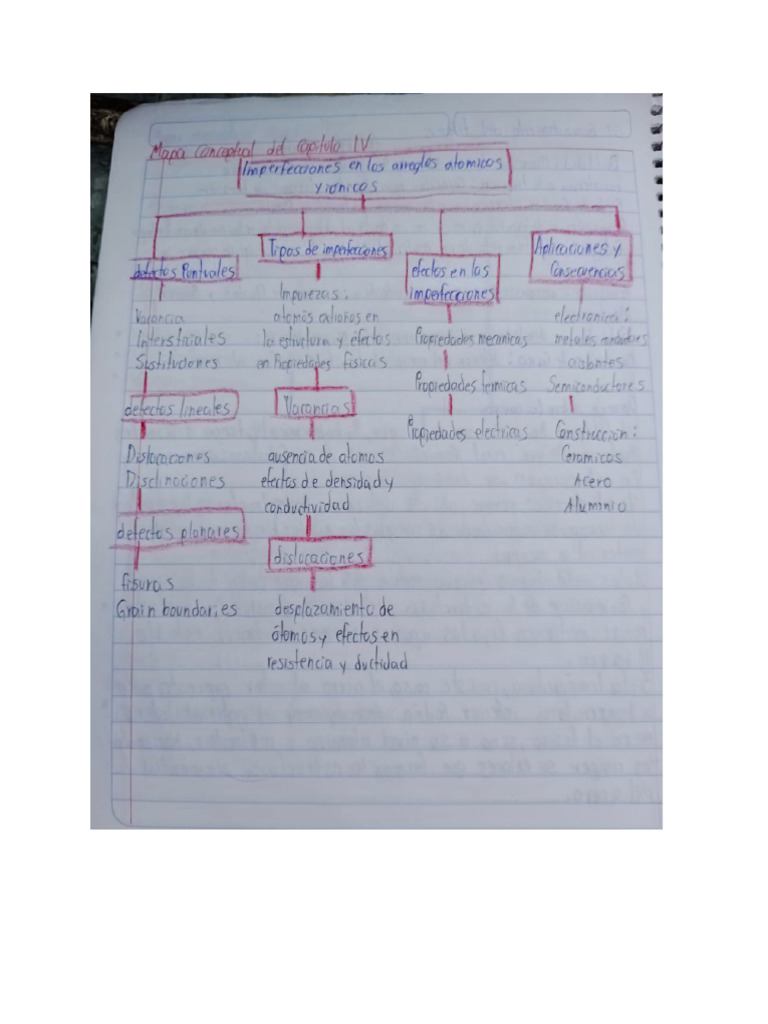 Mapa conceptual del Capitulo IV
Imperfecciones en los arreglos atomicos
y ionicos
defectos Puntuales
Vacancia
Intersticiales
Sustituciones
defectos lineales
Dislocaciones
Disclinaciones
defectos planares
fisuras
Grain boundaries
Tipos de imperfecciones
Impurezas:
atomos en
la estructura y efectos
en Propiedades fisicas
Vacancias
ausencia de atomos
efectos de densidad y
conductividad
dislocaciones
desplazamiento de
átomos y efectos en
resistencia y ductidad
efectos en las
imperfecciones
Propiedades mecanicas
Propiedades termicas
Propiedades electricas
Aplicaciones y
Consecuencias
electronica:
metales
aislantes
Semiconductores
Construcción:
Ceramicos
Acero
Aluminio